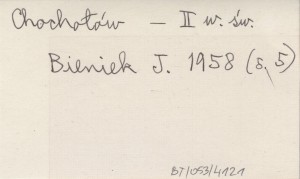 Chochołów – II w. św.
Bieniek J. 1958 (s. 5)
BT/053/4121